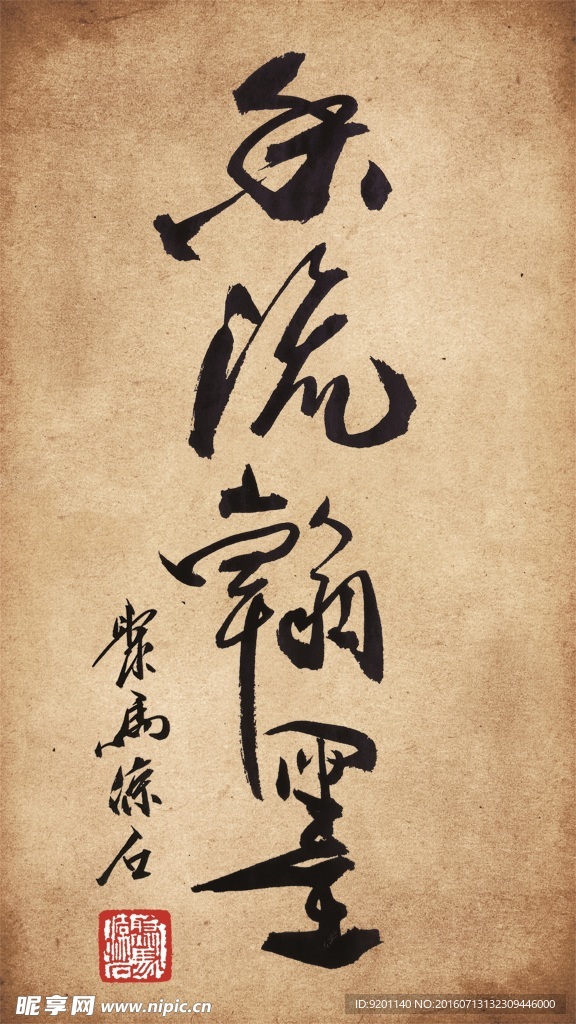 香流翰墨
聚馬涼石
昵享网 www.nipic.cn
ID:9201140 NO:20160713132309446000